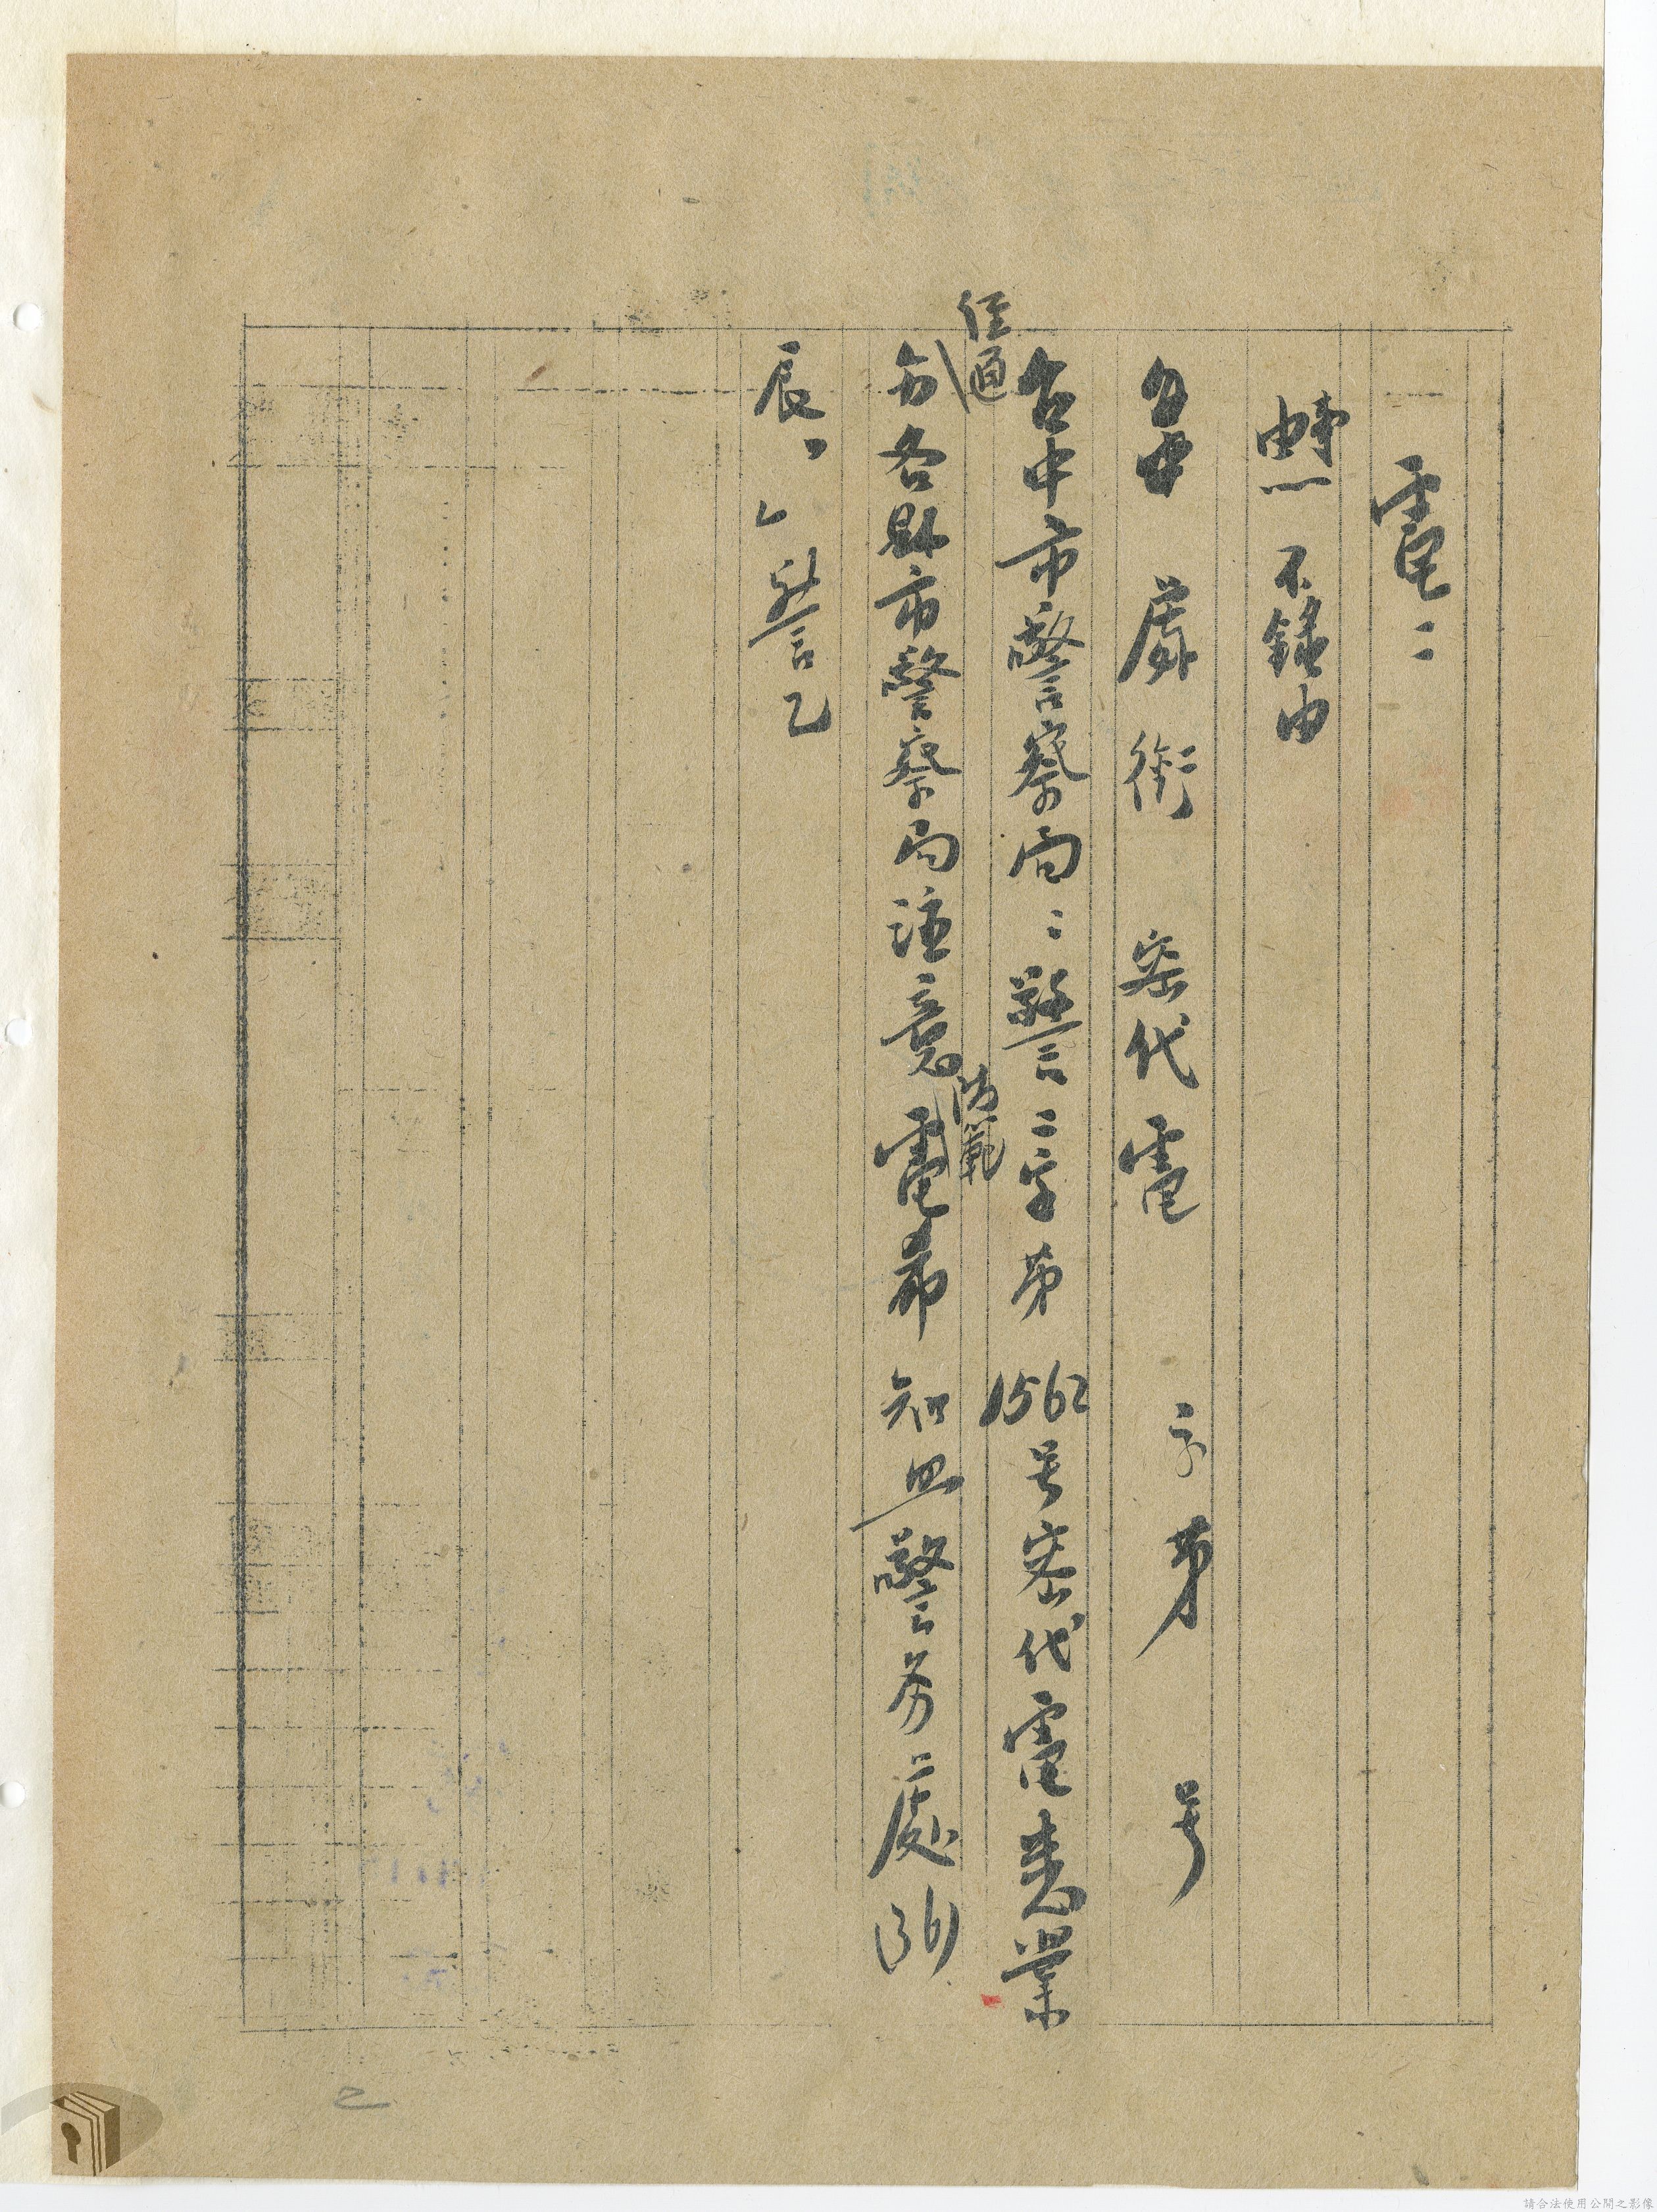 電二
事由 不錄由
處銜 密代電 字第 号
台中市警察局：警二字第1562号密代電悉業
經通
飭各縣市警察局注意
防範
電希知照警務處(36)
辰 警乙
請合法使用公開之影像